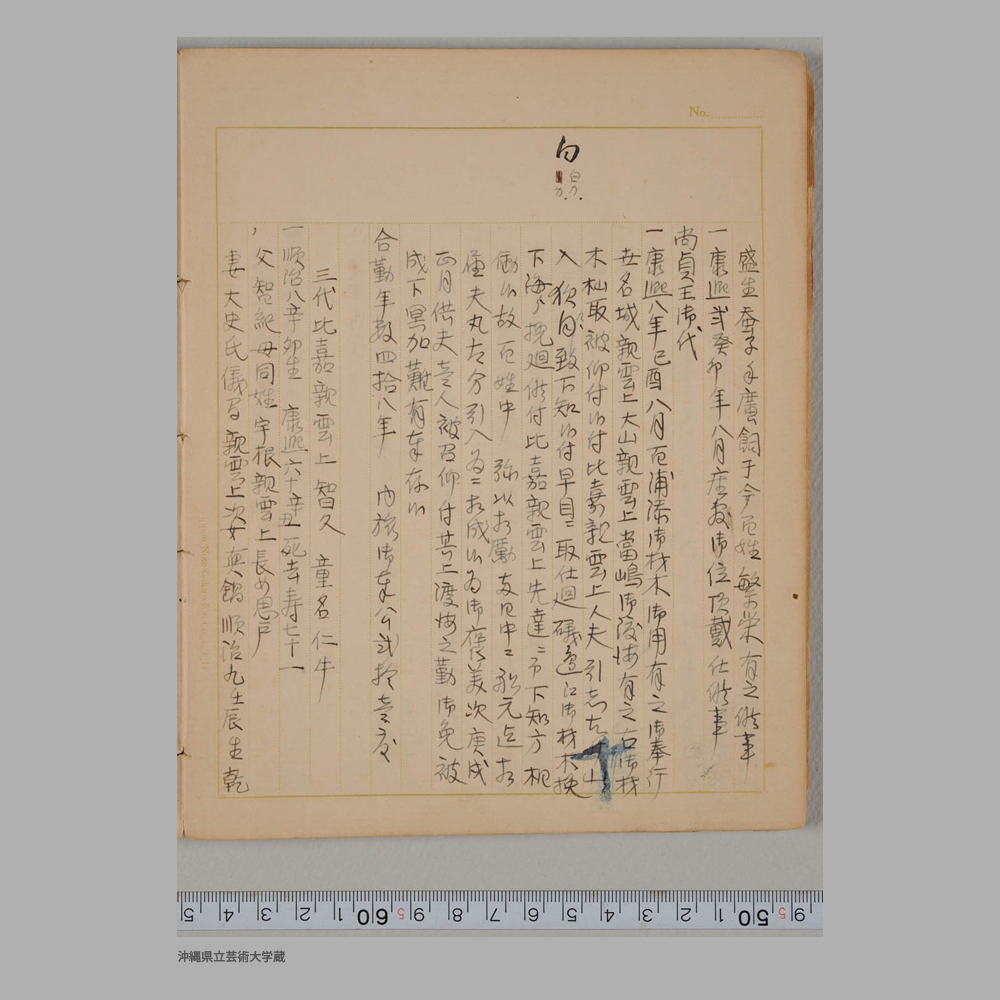 No.
白
白
カ、カ、
盛生 蚕子手廣飼于今百姓繁栄有之候事
一康熙弐癸卯年八月座敷御位頂戴仕候事
尚貞王御代
一康熙八年己酉八月百浦添御材木御用有之御奉行
 名城親雲上大山親雲上當嶋御渡海有之右御材
木杣取被仰付候付比嘉親雲上人夫引 山
入 致下知候付早目ニ取仕廻礒邊江御材木挽
下海 挽廻候付比嘉親雲上先達ニ而下知方
働候故百姓中 弥以 励 申ニ
夫丸 分引入 ニ 成候為御褒美次庚戌
正月供夫壱人被召仰付其上渡海之勤御免被
成下冥加難有奉存候
合勤年数四拾八年 内旅御奉公弐拾壱度
三代比嘉親雲上智久 童名仁牛
一順治八辛卯生 康熙六十辛丑死去寿七十一
父智紀母同姓宇根親雲上長女思戸
妻大史氏儀 親雲上次女真鍋順治九壬辰生乾
5 4 3 2 1 60 5 9 8 7 6 5 4 3 2 1 50 5 9
沖縄県立芸術大学蔵